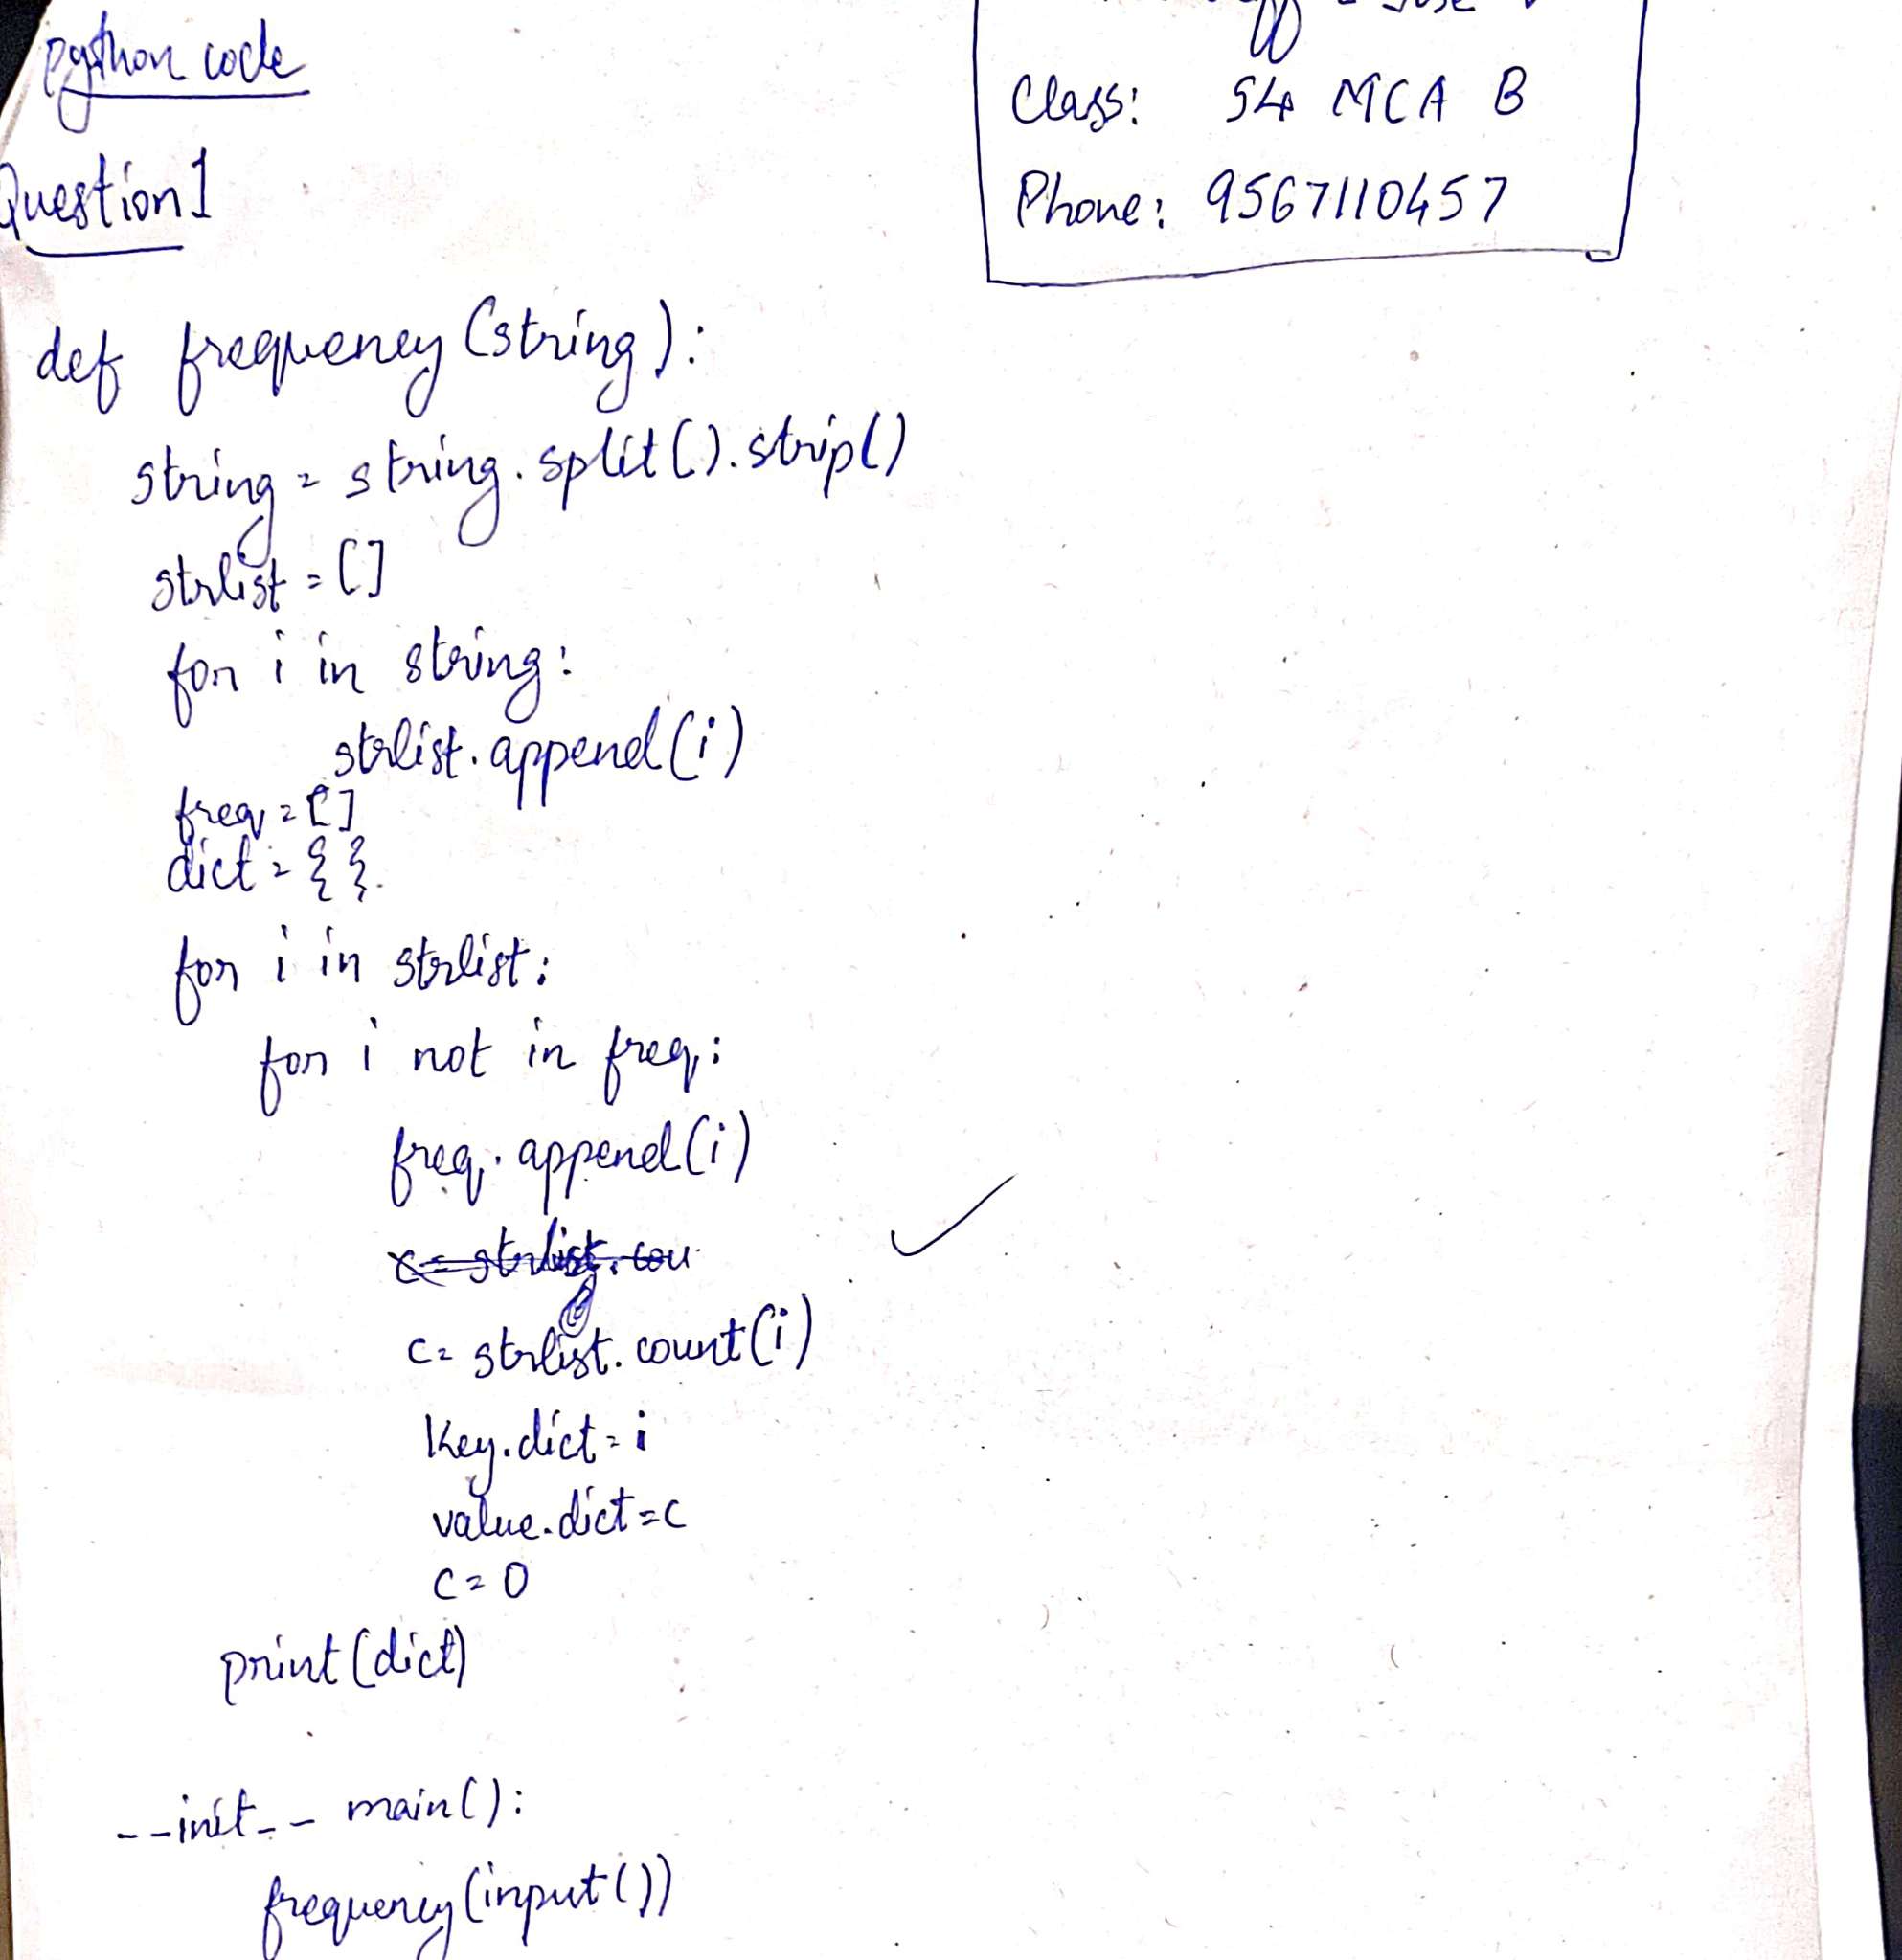 python code
Class: S4 MCA B
Phone: 9567110457
Question 1
def frequency(string):
string = string.split().strip()
strlist = []
for i in string:
strlist.append(i)
freq = []
dict = { }.
for i in strlist:
for i not in freq:
freq.append(i)
c = strlist.cou
c = strlist.count(i)
key.dict = i
value.dict = c
c = 0
print(dict)
__init__ main():
frequency(input())